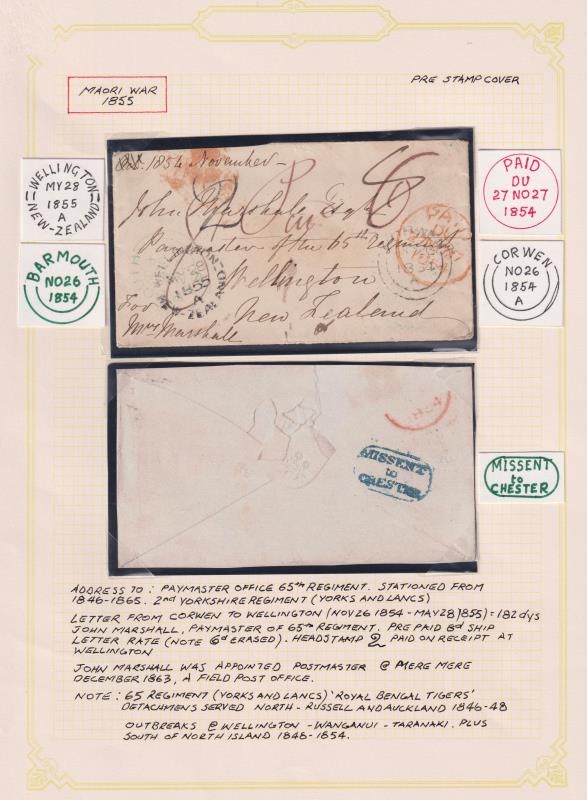 MAORI WAR
1855
PRE STAMP COVER
WELLINGTON
MY 28
1855
A
NEW-ZEALAND
BARMOUTH
NO26
1854
PAID
DU
27 NO 27
1854
CORWEN
NO26
1854
A
1854 November
John Marshall Esqre
Paymaster of the 65th Regiment
Wellington
New Zealand
For
Mrs Marshall
2
8
PAID
1854
1855
A
MISSENT
to
CHESTER
1854
MISSENT
to
CHESTER
ADDRESS TO: PAYMASTER OFFICE 65TH REGIMENT. STATIONED FROM
1846-1865. 2ND YORKSHIRE REGIMENT (YORKS AND LANCS)
LETTER FROM CORWEN TO WELLINGTON (NOV 26 1854 - MAY 28 1855) = 182 dys
JOHN MARSHALL, PAYMASTER OF 65TH REGIMENT. PRE PAID 8d SHIP
LETTER RATE (NOTE 6d ERASED). HEADSTAMP 2 PAID ON RECEIPT AT
WELLINGTON
JOHN MARSHALL WAS APPOINTED POSTMASTER @ MERE MERE
DECEMBER 1863, A FIELD POST OFFICE.
NOTE: 65 REGIMENT (YORKS AND LANCS) 'ROYAL BENGAL TIGERS'
DETACHMENS SERVED NORTH - RUSSELL AND AUCKLAND 1846-48
OUTBREAKS @ WELLINGTON - WANGANUI - TARANAKI. PLUS
SOUTH OF NORTH ISLAND 1848-1854.